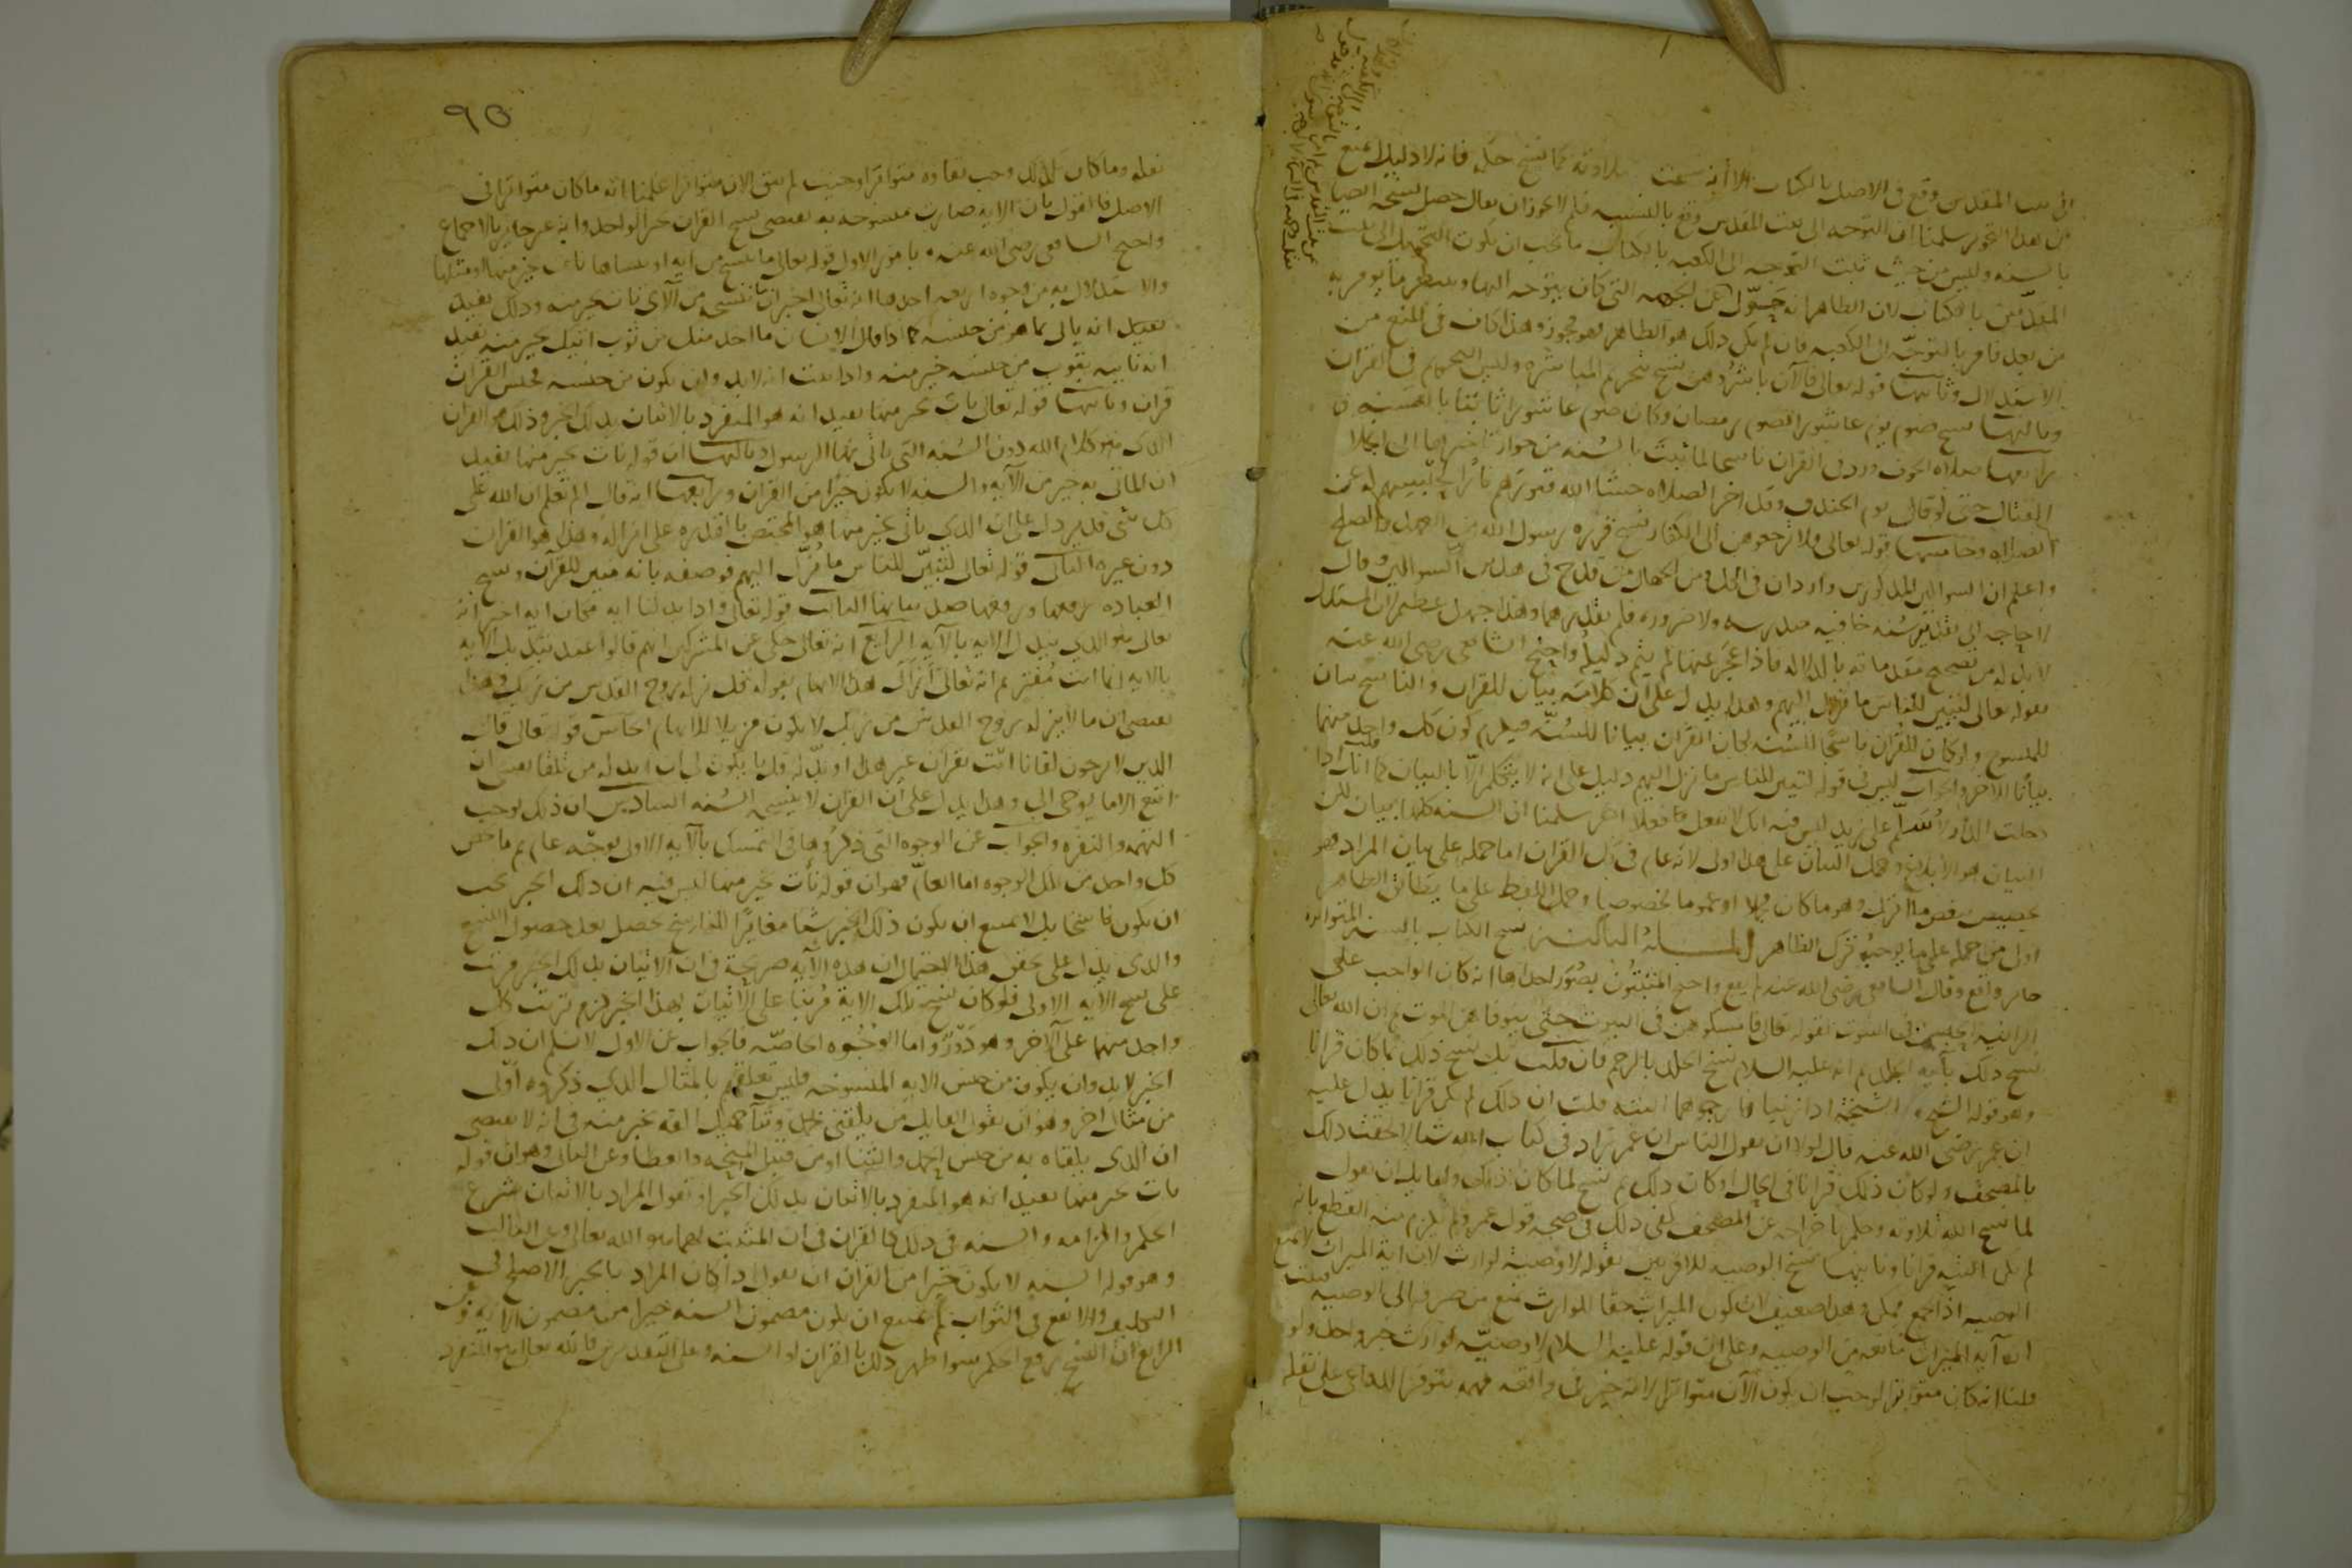 الى بيت المقدس وقع في الاصل بالكتاب الا انه نسخت تلاوته كما نسخ حكمه فانه لا دليل يمنع
من هذا التجويز سلمنا ان التوجه الى بيت المقدس وقع بالسنة فلم لا يجوز ان يقال حصل نسخه
بالسنة وليس من حيث ثبت التوجه الى الكعبة بالكتاب ما يجب ان يكون التحويل الى بيت
المقدس بالكتاب لان الظاهر انه حول عن الجهة التي كان يتوجه اليها وينتظر ما يؤمر به
من بعد فامر بالتوجه الى الكعبة فان لم يكن ذلك هو الظاهر فهو مجوز وهذا كاف في المنع من
الاستدلال وثانيها قوله تعالى فالآن باشروهن نسخ تحريم المباشرة وليس التحريم في القرآن
وثالثها نسخ صوم يوم عاشورا لصوم رمضان وكان صوم عاشورا ثابتا بالسنة
رابعها صلاة الخوف ورد في القرآن ناسخا لما ثبت بالسنة من جواز تاخيرها الى انجلاء
القتال حتى قال يوم الخندق وقد اخر الصلاة حشا الله قبورهم نارا لحبسهم له عن
الصلاة وخامسها قوله تعالى فلا ترجعوهن الى الكفار نسخ قرره رسول الله من العهد والصلح
واعلم ان السوالين المذكورين واردان في الكل ومن الجهال من قدح في هذين السوالين وقال
لا حاجة الى تقدير سنة خافية مندرسة ولا ضرورة فلم نقدرهما وهذا جهل عظيم لان المستدل
لا بد له من تصحيح مقدماته بالدلالة فاذا عجز عنها لم يتم دليله واحتج الشافعي رضي الله عنه
بقوله تعالى لتبين للناس ما نزل اليهم وهذا يدل على ان كلامه بيان للقرآن والناسخ بيان
للمنسوخ ولو كان القرآن ناسخا للسنة لكان القرآن بيانا للسنة فيلزم كون كل واحد منهما
بيانا للآخر والجواب ليس في قوله لتبين للناس ما نزل اليهم دليل على انه لا يتكلم الا بالبيان كما انك اذا قلت
دخلت الدار لاسلم على زيد ليس فيه انك لا تفعل فعلا آخر سلمنا ان السنة كلها بيان لكن
البيان هو الابلاغ وحمل البيان على هذا اولى لانه عام في كل القرآن اما حمله على بيان المراد فهو
تخصيص ببعض ما انزل وهو ما كان مجملا او عموما مخصوصا وحمل اللفظ على ما يطابق الظاهر
اولى من حمله على ما يوجب ترك الظاهر المسئلة الثالثة نسخ الكتاب بالسنة المتواترة
جائز واقع وقال الشافعي رضي الله عنه لم يقع واحتج المثبتون بصور احداها انه كان الواجب على
الزانية الحبس في البيوت لقوله تعالى فامسكوهن في البيوت حتى يتوفاهن الموت ثم ان الله تعالى
نسخ ذلك بآية الجلد ثم انه عليه السلام نسخ الجلد بالرجم فان قلت بل نسخ ذلك بما كان قرآنا
وهو قوله الشيخ والشيخة اذا زنيا فارجموهما البتة قلت ان ذلك لم يكن قرآنا يدل عليه
ان عمر رضي الله عنه قال لولا ان يقول الناس ان عمر زاد في كتاب الله شيا لالحقت ذلك
بالمصحف ولو كان ذلك قرآنا في الحال او كان ذلك ثم نسخ لما كان كذلك ولقائل ان يقول
لما نسخ الله تلاوته وحكم باخراجه عن المصحف كفى ذلك في صحة قول عمر ولم يلزم منه القطع بانه
لم يكن البتة قرآنا وثانيها نسخ الوصية للاقربين بقوله لا وصية لوارث لان اية الميراث لا تمنع
الوصية اذ الجمع ممكن وهذا ضعيف لان كون الميراث حقا للوارث يمنع من صرفه الى الوصية فثبت
ان آية الميراث مانعة من الوصية وعلى ان قوله عليه السلام لا وصية لوارث خبر واحد ولو
قلنا انه كان متواترا لوجب ان يكون الآن متواترا لانه خبر في واقعة مهمة تتوفر الدواعي على نقله
٩٥
نقله وما كان كذلك وجب بقاؤه متواترا وحيث لم يبق الآن متواترا علمنا انه ما كان متواترا في
الاصل فالقول بان الآية صارت منسوخة به يقتضي نسخ القرآن بخبر الواحد وانه غير جائز بالاجماع
واحتج الشافعي رضي الله عنه بامور الاول قوله تعالى ما ننسخ من آية او ننساها نات بخير منها او مثلها
والاستدلال به من وجوه اربعة احدها انه تعالى اخبر ان ما ننسخه من الآي نات بخير منه وذلك يفيد
يفيد انه ياتي بما هو من جنسه كما اذا قال الانسان ما اخذ منك من ثوب اتيك بخير منه يفيد
انه ياتيه بثوب من جنسه خير منه واذا ثبت انه لا بد وان يكون من جنسه فجنس القرآن
قرآن وثانيها قوله تعالى نات بخير منها يفيد انه هو المنفرد بالاتيان بذلك الخير وذلك هو القرآن
الذي هو كلام الله دون السنة التي ياتي بها الرسول وثالثها ان قوله نات بخير منها يفيد
ان الماتي به خير من الآية والسنة لا يكون خيرا من القرآن ورابعها انه قال الم تعلم ان الله على
كل شي قدير دل على ان الذي ياتي بخير منها هو المختص بالقدرة على انزاله وهذا هو القرآن
دون غيره الثاني قوله تعالى لتبين للناس ما نزل اليهم فوصفه بانه مبين للقرآن ونسخ
العبادة رفعها ورفعها ضد بيانها الثالث قوله تعالى واذا بدلنا اية مكان اية اخبر انه
تعالى هو الذي يبدل الآية بالآية الرابع انه تعالى حكى عن المشركين انهم قالوا عند تبديل الآية
بالآية انما انت مفتر ثم انه تعالى ازال هذا الايهام بقوله قل نزله روح القدس من ربك وهذا
يقتضي ان ما لا ينزله روح القدس من ربك لا يكون مزيلا للايهام الخامس قوله تعالى قال
الذين لا يرجون لقانا ائت بقرآن غير هذا او بدله قل ما يكون لي ان ابدله من تلقا نفسي ان
اتبع الا ما يوحى الي وهذا يدل على ان القرآن لا ينسخه السنة السادس ان ذلك يوجب
التهمة والنفرة والجواب عن الوجوه التي ذكروها في التمسك بالآية الاولى بوجه عام ثم بما خص
كل واحد من تلك الوجوه اما العام فهو ان قوله نات بخير منها ليس فيه ان ذلك الخير يجب
ان يكون ناسخا بل لا يمتنع ان يكون ذلك الخير شيا مغايرا للناسخ يحصل بعد حصول النسخ
والذي يدل على تحقق هذا الاحتمال ان هذه الآية صريحة في ان الاتيان بذلك الخير مرتب
على نسخ الآية الاولى فلو كان نسخ تلك الآية مرتبا على الاتيان بهذا الخير لزم ترتب كل
واحد منهما على الآخر وهو دور واما الوجوه الخاصة فالجواب عن الاول لا نسلم ان ذلك
الخير لا بد وان يكون من جنس الآية المنسوخة فليس تعلقهم بالمثال الذي ذكروه اولى
من مثال آخر وهو ان يقول القائل من يلقني بحمد وثنا جميل القه بخير منه في انه لا يقتضي
ان الذي يلقاه به من جنس الحمد والثنا او من قبيل المنحة والعطا وعن الثاني وهو ان قوله
نات بخير منها يفيد انه هو المنفرد بالاتيان بذلك الخير ان نقول المراد بالاتيان شرع
الحكم والزامه والسنة في ذلك كالقرآن في ان المثبت لهما هو الله تعالى وعن الثالث
وهو قوله السنة لا يكون خيرا من القرآن ان نقول اذا كان المراد بالخير الاصلح في
التكليف والانفع في الثواب لم يمتنع ان يكون مضمون السنة خيرا من مضمون الآية وعن
الرابع ان النسخ رفع الحكم سوا ظهر ذلك بالقرآن او السنة وعلى التقديرين فالله تعالى هو المتفرد